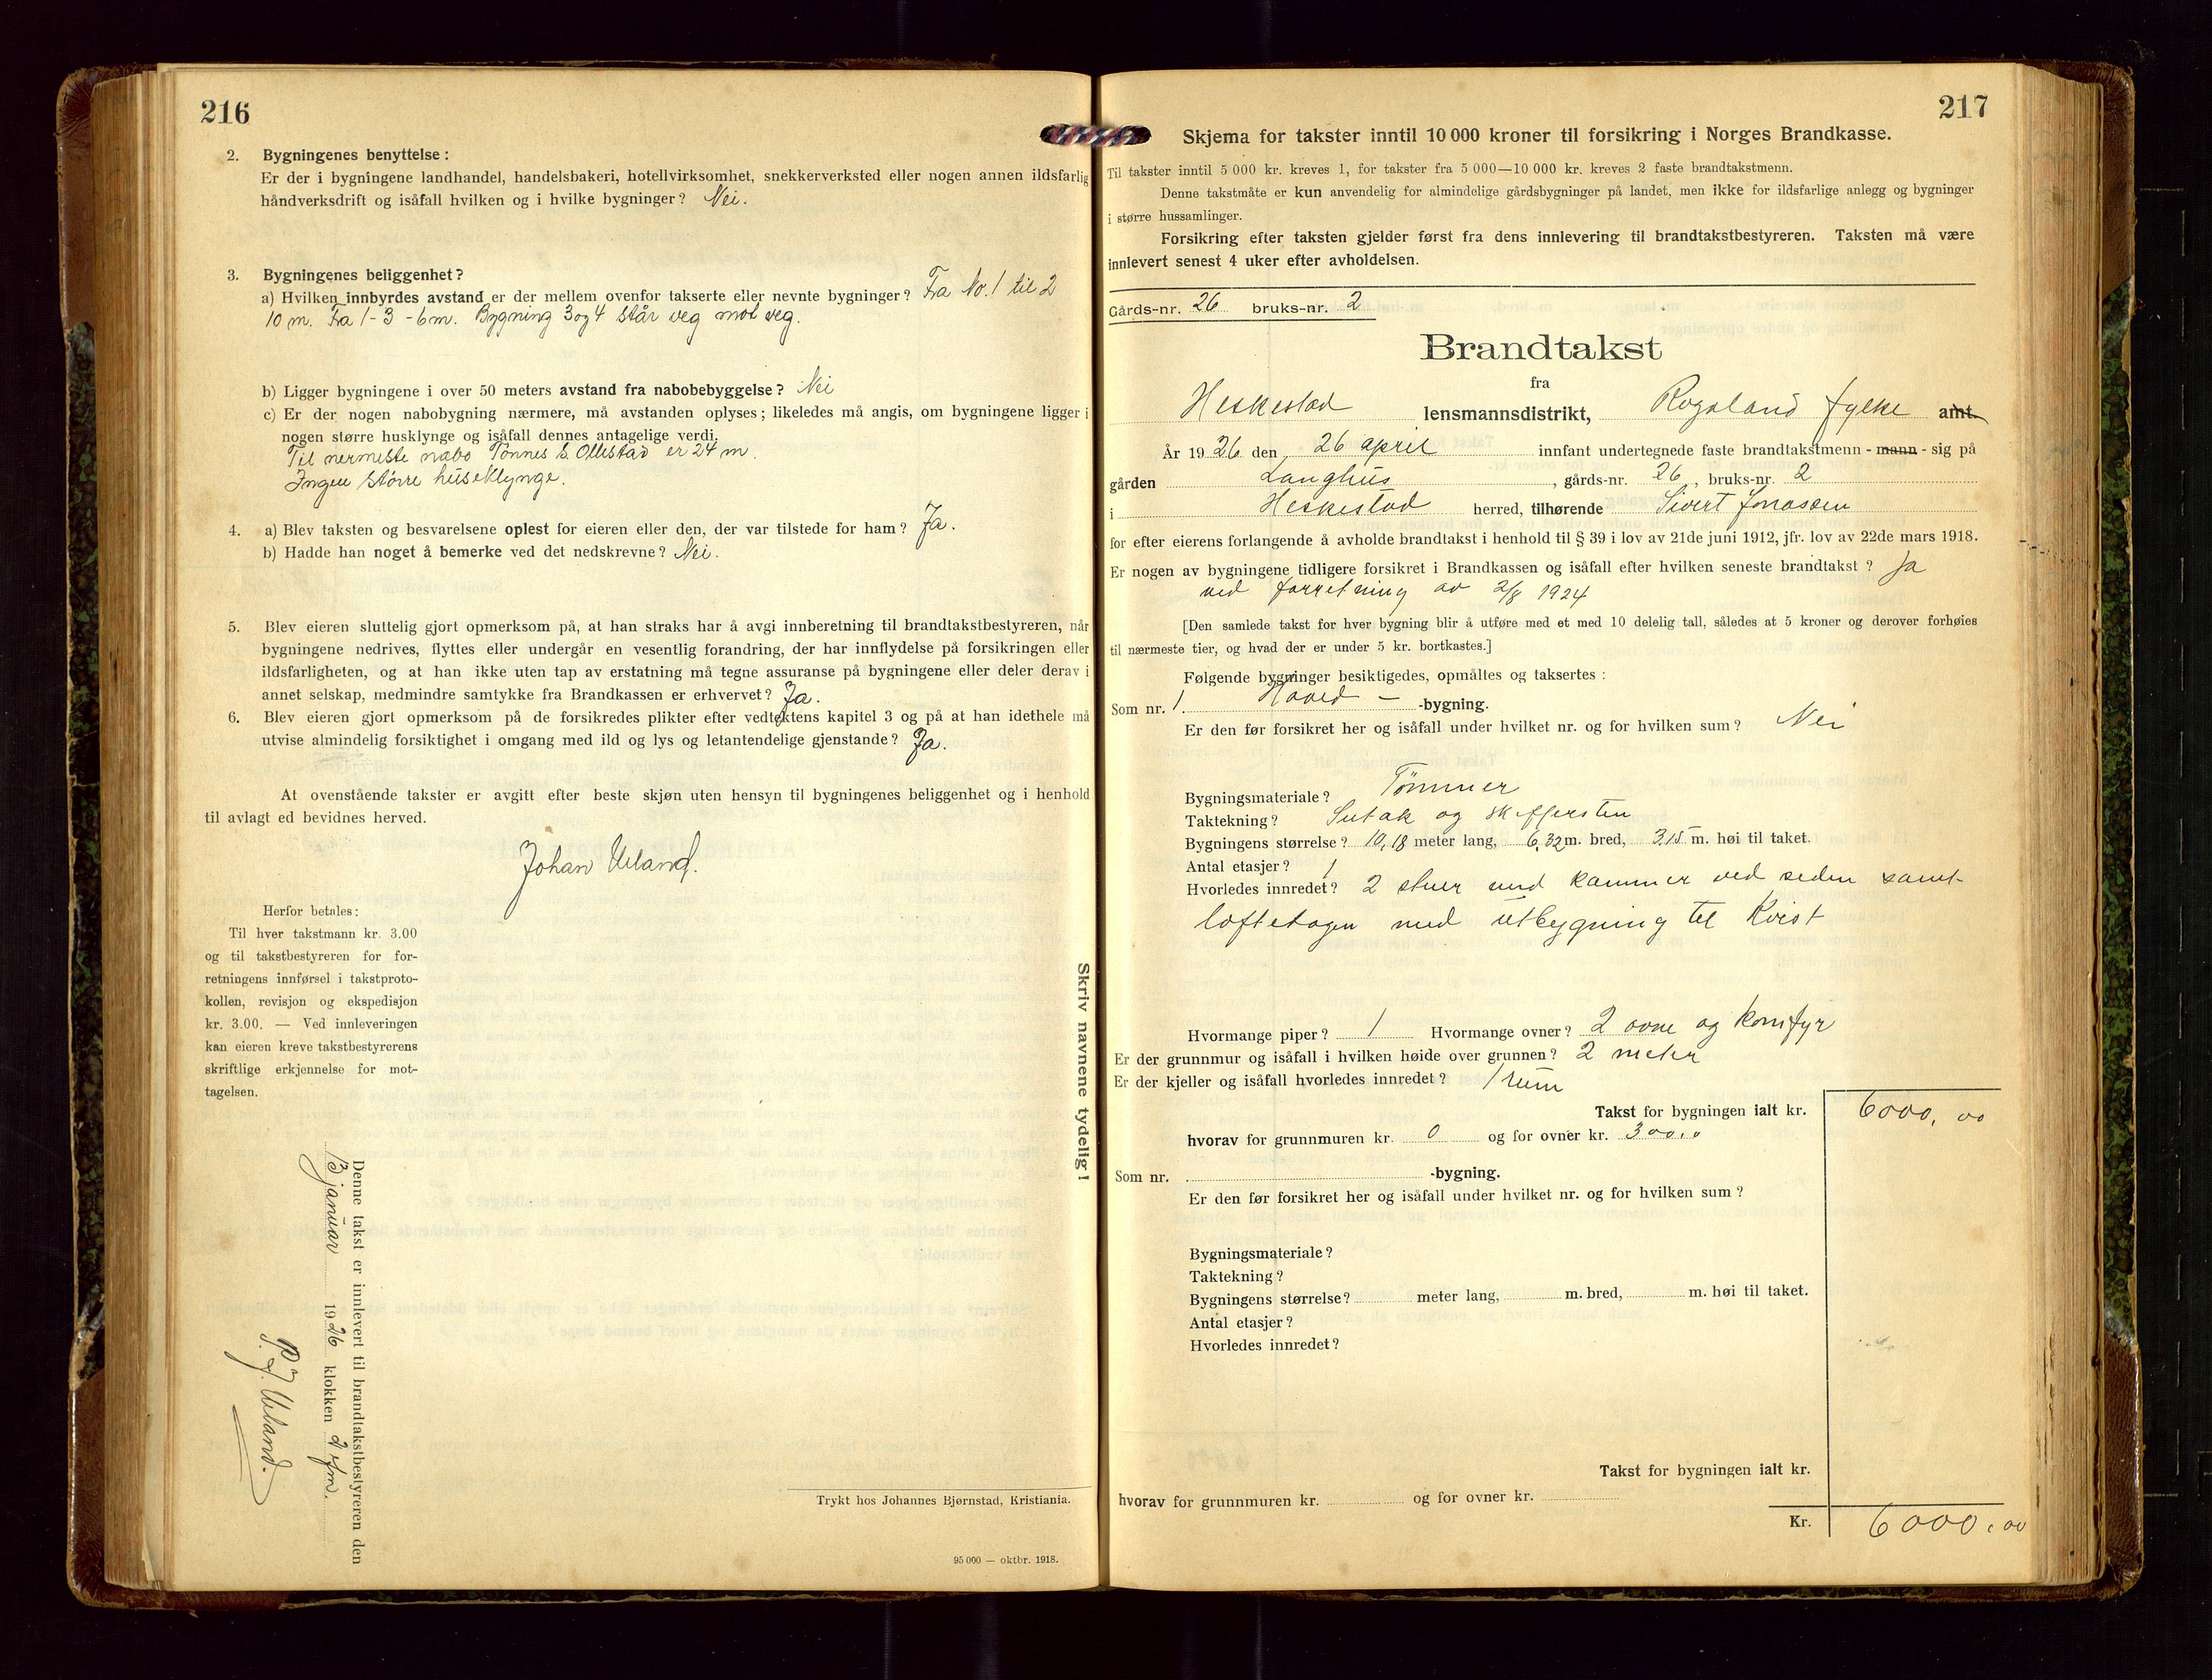 216
2. Bygningenes benyttelse:
Er der i bygningene landhandel, handelsbakeri, hotellvirksomhet, snekkerverksted eller nogen annen ildsfarlig
håndverksdrift og isåfall hvilken og i hvilke bygninger? Nei.
3. Bygningenes beliggenhet?
a) Hvilken innbyrdes avstand er der mellem ovenfor takserte eller nevnte bygninger? Fra No. 1 til 2
10 m. Fra 1-3 - 6 m. Bygning 3 og 4 står veg mot veg.
b) Ligger bygningene i over 50 meters avstand fra nabobebyggelse? Nei
c) Er der nogen nabobygning nærmere, må avstanden oplyses; likeledes må angis, om bygningene ligger i
nogen større husklynge og isåfall dennes antagelige verdi.
Til nermeste nabo Tønnes S. Ollestad er 24 m.
Ingen større huseklynge.
4. a) Blev taksten og besvarelsene oplest for eieren eller den, der var tilstede for ham? Ja.
b) Hadde han noget å bemerke ved det nedskrevne? Nei.
5. Blev eieren sluttelig gjort opmerksom på, at han straks har å avgi innberetning til brandtakstbestyreren, når
bygningene nedrives, flyttes eller undergår en vesentlig forandring, der har innflydelse på forsikringen eller
ildsfarligheten, og at han ikke uten tap av erstatning må tegne assuranse på bygningene eller deler derav i
annet selskap, medmindre samtykke fra Brandkassen er erhvervet? Ja.
6. Blev eieren gjort opmerksom på de forsikredes plikter efter vedtektens kapitel 3 og på at han idethele må
utvise almindelig forsiktighet i omgang med ild og lys og letantendelige gjenstande? Ja.
At ovenstående takster er avgitt efter beste skjøn uten hensyn til bygningenes beliggenhet og i henhold
til avlagt ed bevidnes herved.
Johan Ueland.
Herfor betales:
Til hver takstmann kr. 3.00
og til takstbestyreren for for-
retningens innførsel i takstproto-
kollen, revisjon og ekspedisjon
kr. 3.00. — Ved innleveringen
kan eieren kreve takstbestyrerens
skriftlige erkjennelse for mot-
tagelsen.
Skriv navnene tydelig!
Denne takst er innlevert til brandtakstbestyreren den
13 januar 1926 klokken 2 fm.
P. J. Ueland.
Trykt hos Johannes Bjørnstad, Kristiania.
95 000 — oktbr. 1918.
217
Skjema for takster inntil 10 000 kroner til forsikring i Norges Brandkasse.
Til takster inntil 5 000 kr. kreves 1, for takster fra 5 000—10 000 kr. kreves 2 faste brandtakstmenn.
Denne takstmåte er kun anvendelig for almindelige gårdsbygninger på landet, men ikke for ildsfarlige anlegg og bygninger
i større hussamlinger.
Forsikring efter taksten gjelder først fra dens innlevering til brandtakstbestyreren. Taksten må være
innlevert senest 4 uker efter avholdelsen.
Gårds-nr. 26 bruks-nr. 2
Brandtakst
fra
Heskestad lensmannsdistrikt, Rogaland fylke amt.
År 1926 den 26 april innfant undertegnede faste brandtakstmenn - mann - sig på
gården Langhus, gårds-nr. 26, bruks-nr. 2
i Heskestad herred, tilhørende Sivert Jonassen
for efter eierens forlangende å avholde brandtakst i henhold til § 39 i lov av 21de juni 1912, jfr. lov av 22de mars 1918.
Er nogen av bygningene tidligere forsikret i Brandkassen og isåfall efter hvilken seneste brandtakst? Ja
ved forretning av 2/8 1924
[Den samlede takst for hver bygning blir å utføre med et med 10 delelig tall, således at 5 kroner og derover forhøies
til nærmeste tier, og hvad der er under 5 kr. bortkastes.]
Følgende bygninger besiktigedes, opmåltes og taksertes:
Som nr. 1 Hoved - -bygning.
Er den før forsikret her og isåfall under hvilket nr. og for hvilken sum? Nei
Bygningsmateriale? Tømmer
Taktekning? Sutak og skifersten
Bygningens størrelse? 10,18 meter lang, 6,32 m. bred, 3,15 m. høi til taket.
Antal etasjer? 1
Hvorledes innredet? 2 stuer med kammer ved siden samt
loftetagen med utbygning til Kvist
Hvormange piper? 1 Hvormange ovner? 2 ovne og komfyr
Er der grunnmur og isåfall i hvilken høide over grunnen? 2 meter
Er der kjeller og isåfall hvorledes innredet? 1 rum
Takst for bygningen ialt kr. 6000,00
hvorav for grunnmuren kr. 0 og for ovner kr. 300,00
Som nr. -bygning.
Er den før forsikret her og isåfall under hvilket nr. og for hvilken sum?
Bygningsmateriale?
Taktekning?
Bygningens størrelse? meter lang, m. bred, m. høi til taket.
Antal etasjer?
Hvorledes innredet?
Takst for bygningen ialt kr.
hvorav for grunnmuren kr. og for ovner kr.
Kr. 6000,00